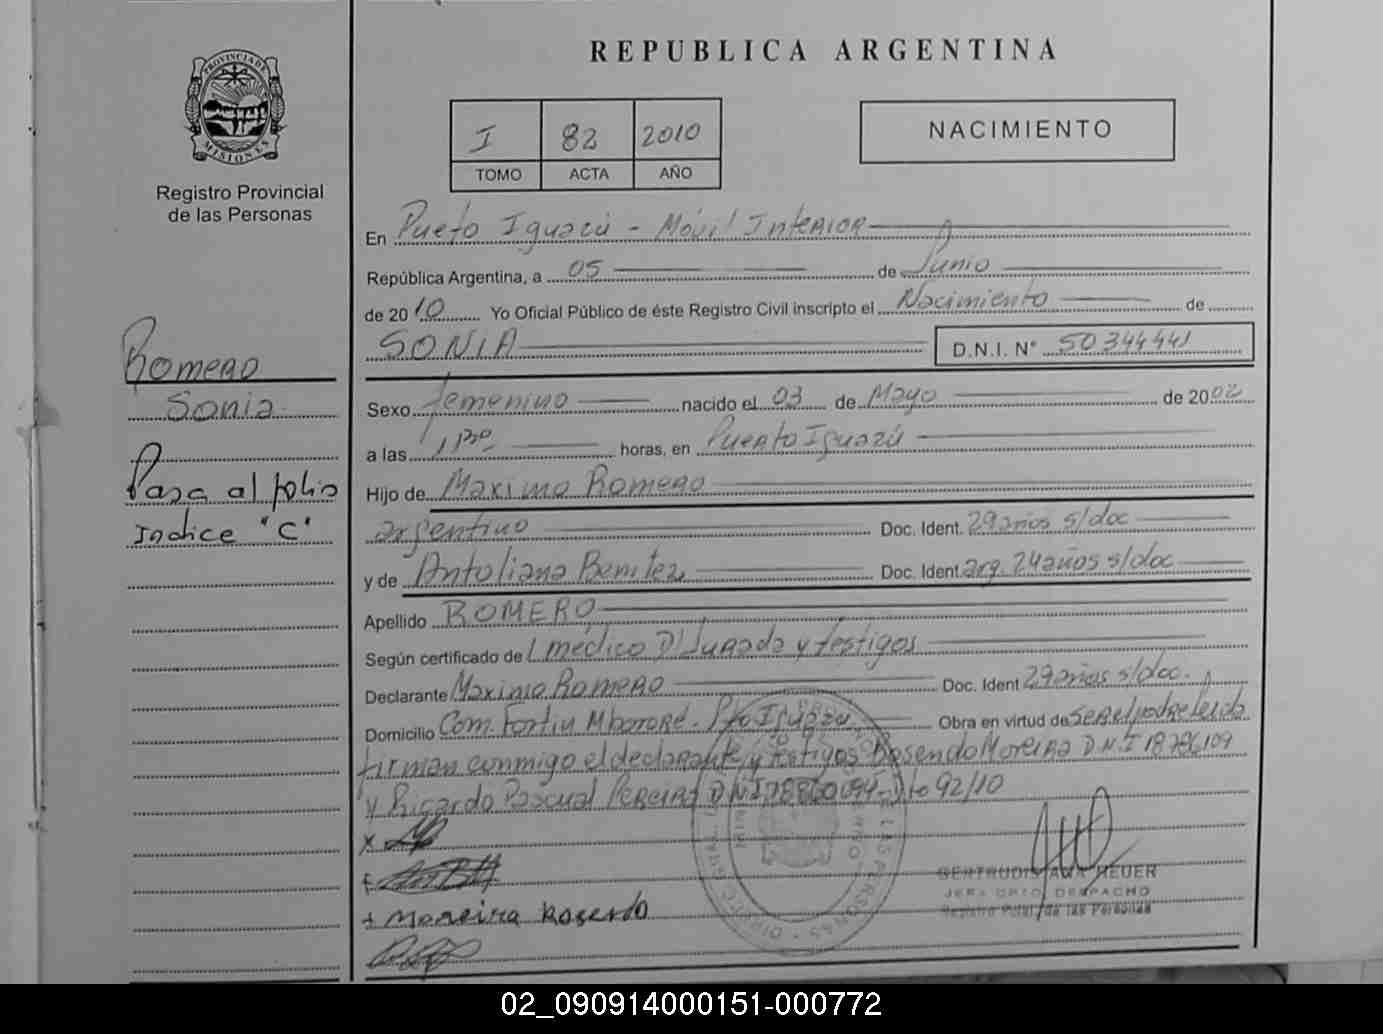 PROVINCIA DE
MISIONES
Registro Provincial
de las Personas
Romero
Sonia
Pasa al folio
Indice "C"
REPUBLICA ARGENTINA
I 82 2010
TOMO ACTA AÑO
NACIMIENTO
En Pueto Iguazú - Móvil Interior
República Argentina, a 05 de Junio
de 2010 Yo Oficial Público de éste Registro Civil inscripto el Nacimiento de
SONIA D.N.I. N° 50344441
Sexo femenino nacido el 03 de Mayo de 2002
a las horas, en Puerto Iguazú
Hijo de Maximo Romero
argentino Doc. Ident. 29 años s/doc
y de Antoliana Benitez Doc. Ident. arg. 24 años s/doc
Apellido ROMERO
Según certificado de médico D' Jurada y testigos
Declarante Maximo Romero Doc. Ident 29 años s/doc.
Domicilio Com. Fortin Mbororé. Pto Iguazu Obra en virtud de ser el padre leida
firman conmigo el declarante y testigos Rosendo Moreira D.N.I 18786109
y Ricardo Pascual Pereira D.N.I 92/10
x
+ Moreira Rosendo
GERTRUDIS ANA HEUER
JEFA DPTO DESPACHO
Registro Pcial. de las Personas
02_090914000151-000772